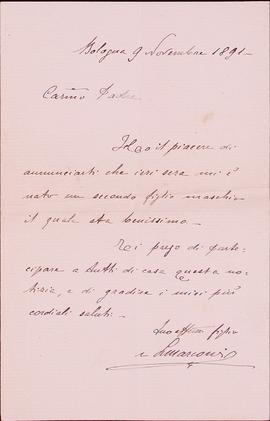 Bologna 9 Novembre 1891 -
Carmo Padre
Ho il piacere di
annunciarti che ieri sera mi è
nato un secondo figlio maschio
il quale sta benissimo -
Ti prego di parte-
cipare a tutti di casa questa no-
tizia, e di gradire i miei più
cordiali saluti -
Tuo figlio